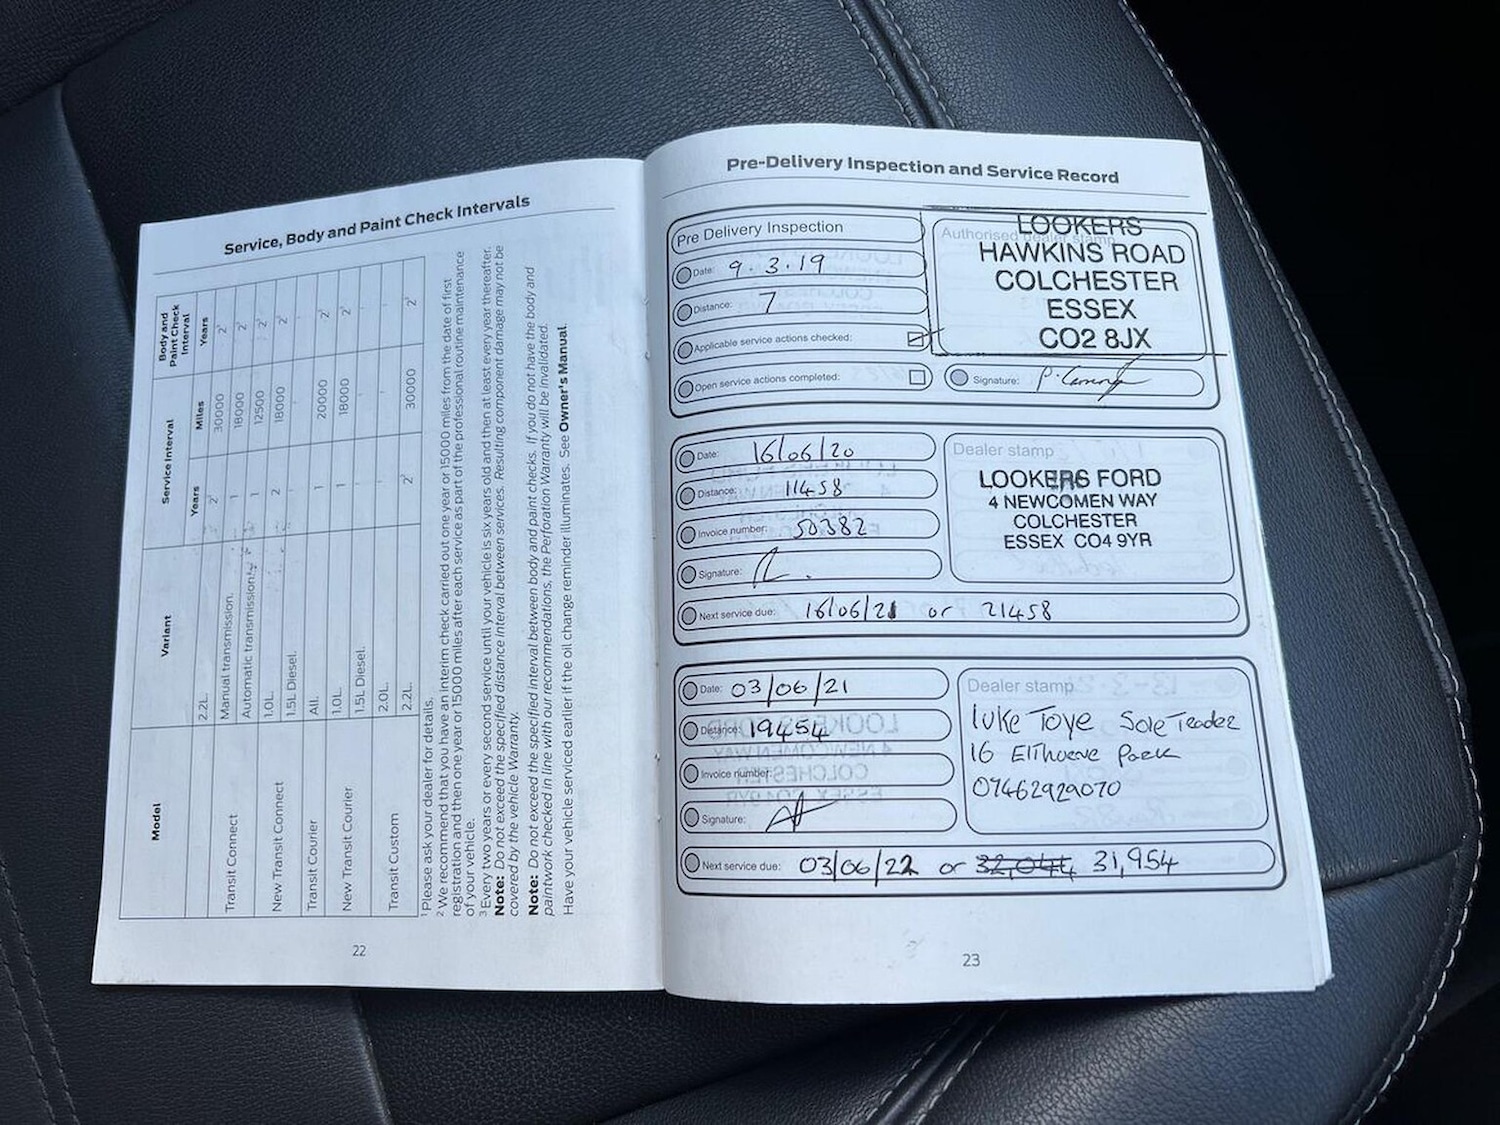 Service, Body and Paint Check Intervals
Model
Variant
Service Interval
Body and Paint Check Interval
Years
Miles
Years
2.2L. 2² 30000 2³
Transit Connect
Manual transmission. 1 18000 2³
Automatic transmission. 1 12500 2³
New Transit Connect
1.0L. 2 18000 2³
1.5L Diesel. - - -
Transit Courier
All. 1 20000 2³
New Transit Courier
1.0L. 1 18000 2³
1.5L Diesel. - - -
Transit Custom
2.0L. - - -
2.2L. 2² 30000 2³
¹ Please ask your dealer for details.
² We recommend that you have an interim check carried out one year or 15000 miles from the date of first
registration and then one year or 15000 miles after each service as part of the professional routine maintenance
of your vehicle.
³ Every two years or every second service until your vehicle is six years old and then at least every year thereafter.
Note: Do not exceed the specified distance interval between services. Resulting component damage may not be
covered by the vehicle Warranty.
Note: Do not exceed the specified interval between body and paint checks. If you do not have the body and
paintwork checked in line with our recommendations, the Perforation Warranty will be invalidated.
Have your vehicle serviced earlier if the oil change reminder illuminates. See Owner's Manual.
22
Pre-Delivery Inspection and Service Record
Pre Delivery Inspection
Date: 9.3.19
Distance: 7
Applicable service actions checked:
Open service actions completed:
Authorised dealer stamp
LOOKERS
HAWKINS ROAD
COLCHESTER
ESSEX
CO2 8JX
Signature:
Date: 16/06/20
Distance: 11458
Invoice number: 50382
Signature:
Dealer stamp
LOOKERS FORD
4 NEWCOMEN WAY
COLCHESTER
ESSEX CO4 9YR
Next service due: 16/06/21 or 21458
Date: 03/06/21
Distance: 19454
Invoice number:
Signature:
Dealer stamp
Luke Toye Sole Trader
16 Elthorne Park
07462929070
Next service due: 03/06/22 or 32,044 31,954
23